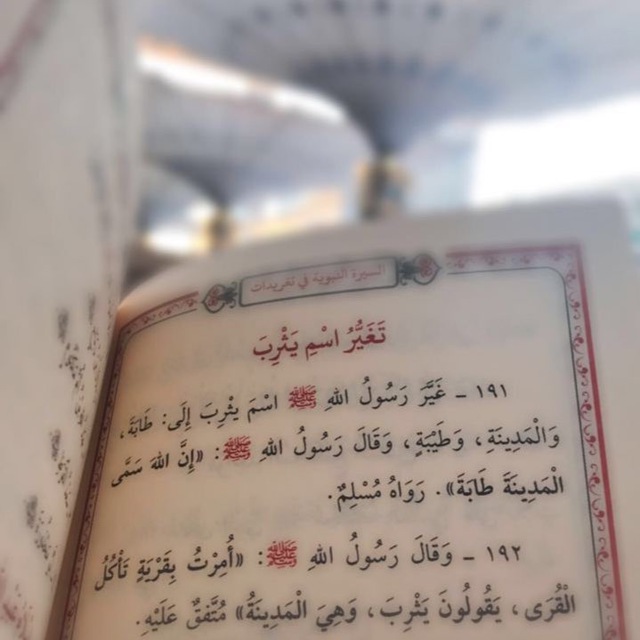 السيرة النبوية في تغريدات
تَغَيُّرُ اسْمِ يَثْرِبَ
١٩١ - غَيَّرَ رَسُولُ اللهِ ﷺ اسْمَ يَثْرِبَ إِلَى: طَابَةَ،
وَالْمَدِينَةِ، وَطَيْبَةٍ، وَقَالَ رَسُولُ اللهِ ﷺ: «إِنَّ اللهَ سَمَّى
الْمَدِينَةَ طَابَةَ». رَوَاهُ مُسْلِمٌ.
١٩٢ - وَقَالَ رَسُولُ اللهِ ﷺ: «أُمِرْتُ بِقَرْيَةٍ تَأْكُلُ
الْقُرَى، يَقُولُونَ يَثْرِبَ، وَهِيَ الْمَدِينَةُ» مُتَّفَقٌ عَلَيْهِ.